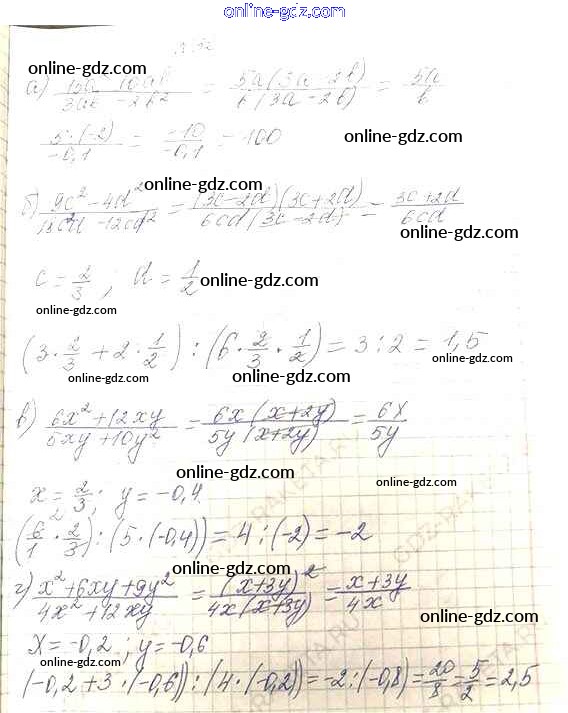 online-gdz.com
online-gdz.com
а) (15a² - 10ab)/(3ab - 2b²) = 5a(3a - 2b)/b(3a - 2b) = 5a/b
5·(-2)/-0,1 = -10/-0,1 = 100
online-gdz.com
online-gdz.com
б) (9c² - 4d²)/(18c²d - 12cd²) = (3c - 2d)(3c + 2d)/6cd(3c - 2d) = (3c + 2d)/6cd
online-gdz.com
c = 2/3 ; d = 1/2
online-gdz.com
online-gdz.com
(3 · 2/3 + 2 · 1/2) : (6 · 2/3 · 1/2) = 3 : 2 = 1,5
online-gdz.com
online-gdz.com
в) (6x² + 12xy)/(5xy + 10y²) = 6x(x + 2y)/5y(x + 2y) = 6x/5y
online-gdz.com
x = 2/3 ; y = -0,4
online-gdz.com
(6/1 · 2/3) : (5 · (-0,4)) = 4 : (-2) = -2
online-gdz.com
г) (x² + 6xy + 9y²)/(4x² + 12xy) = (x + 3y)²/4x(x + 3y) = (x + 3y)/4x
online-gdz.com
x = -0,2 ; y = -0,6
online-gdz.com
(-0,2 + 3 · (-0,6)) : (4 · (-0,2)) = -2 : (-0,8) = 20/8 = 5/2 = 2,5
online-gdz.com